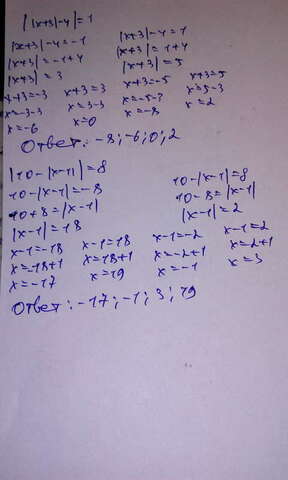 ||x+3|-4|=1
|x+3|-4=-1    |x+3|-4=1
|x+3|=-1+4    |x+3|=1+4
|x+3|=3    |x+3|=5
x+3=-3    x+3=3    x+3=-5    x+3=5
x=-3-3    x=3-3    x=-5-3    x=5-3
x=-6    x=0    x=-8    x=2
Ответ: -8;-6;0;2
|10-|x-1||=8
10-|x-1|=-8    10-|x-1|=8
10+8=|x-1|    10-8=|x-1|
|x-1|=18    |x-1|=2
x-1=-18    x-1=18    x-1=-2    x-1=2
x=-18+1    x=18+1    x=-2+1    x=2+1
x=-17    x=19    x=-1    x=3
Ответ: -17;-1;3;19